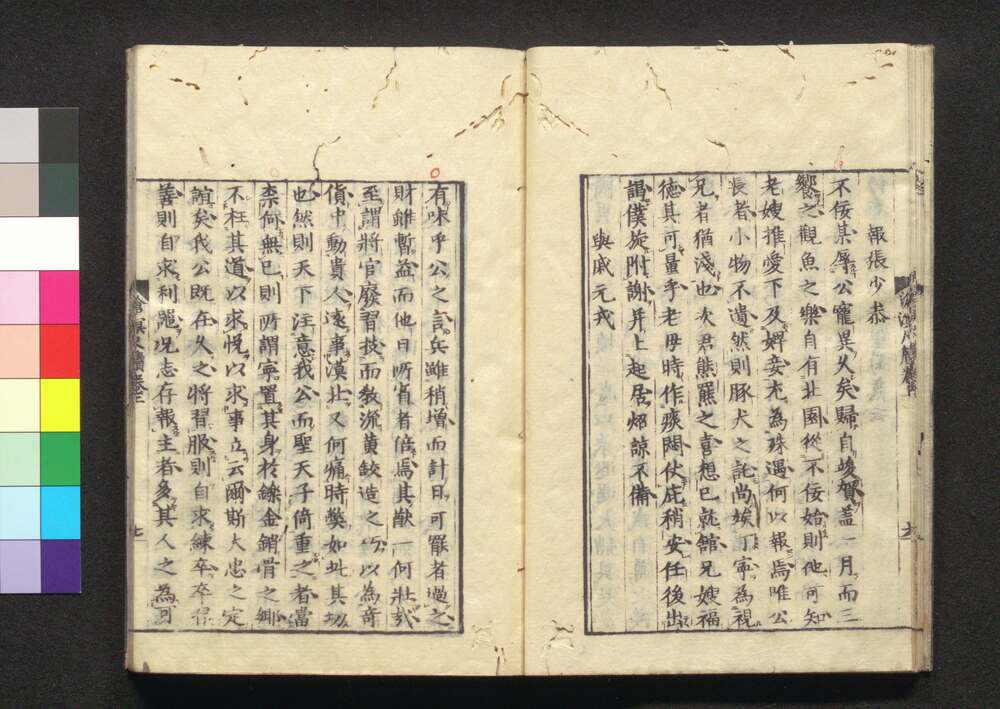 報張少恭
不佞某辱公寵異久矣歸自竣賀盖一月而三
饗之觀魚之樂自有此園從不佞始則他可知
老嫂推愛下及婢妾尤為殊遇何以報焉唯公
長者小物不遺然則豚犬之託尚竢丁寧為視
兄者猶淺也次君熊羆之喜想已就舘兄嫂福
德其可量乎老母時作痰閧伏庇稍安任後出
謁僕旋附謝并上起居炤諒不備
與戚元戎
有味乎公之言兵雖稍增而計日可罷者過之
財雖暫益而他日所省者倍焉其猷一何壯哉
至謂將官廢習技而教流黄鈙造之以為奇
貨中動貴人遠事漢北又何痛時獘如此其切
也然則天下注意我公而聖天子倚重之者當
柰何無已則所謂寧置其身於鑠金銷骨之鄉
不枉其道以求悅以求事立云爾斯大忠之定
誼矣我公既在久之將習服則自求練卒卒習
善則自求利器况志存報主者多其人之為可
滄溟尺牘卷